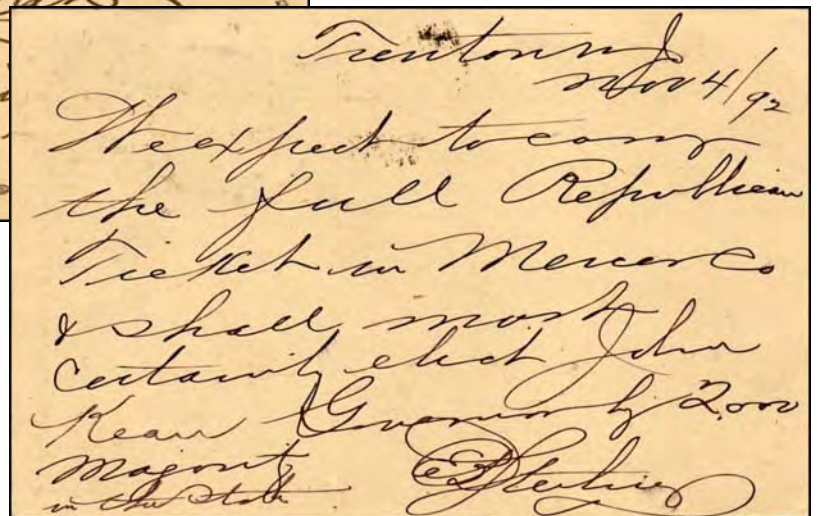 Trenton NJ
Nov 4/92
We expect to carry
the full Republican
Ticket in Mercer Co
& shall most
certainly elect John
Kean Governor by 2,000
Majority
in the State